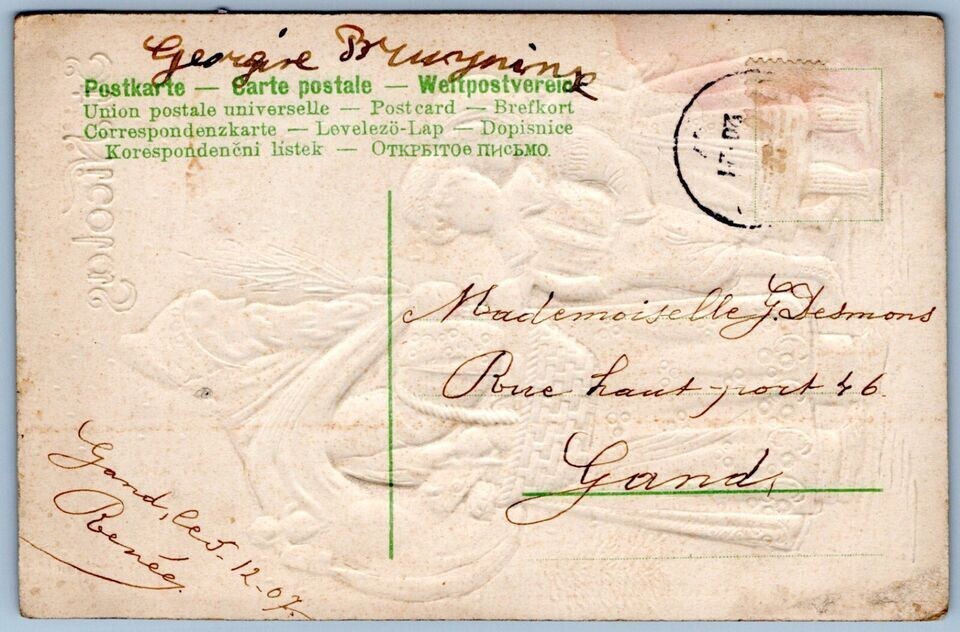 Georgine Bruynink
Postkarte — Carte postale — Weltpostverein
Union postale universelle — Postcard — Brefkort
Correspondenzkarte — Levelezö-Lap — Dopisnice
Korespondenční listek — ОТКРЫТОЕ ПИСЬМО.
Mademoiselle G. Desmons
Rue haut-port 46
Gand,
Gand, le 5-12-07.
Renée.
St Nicolas